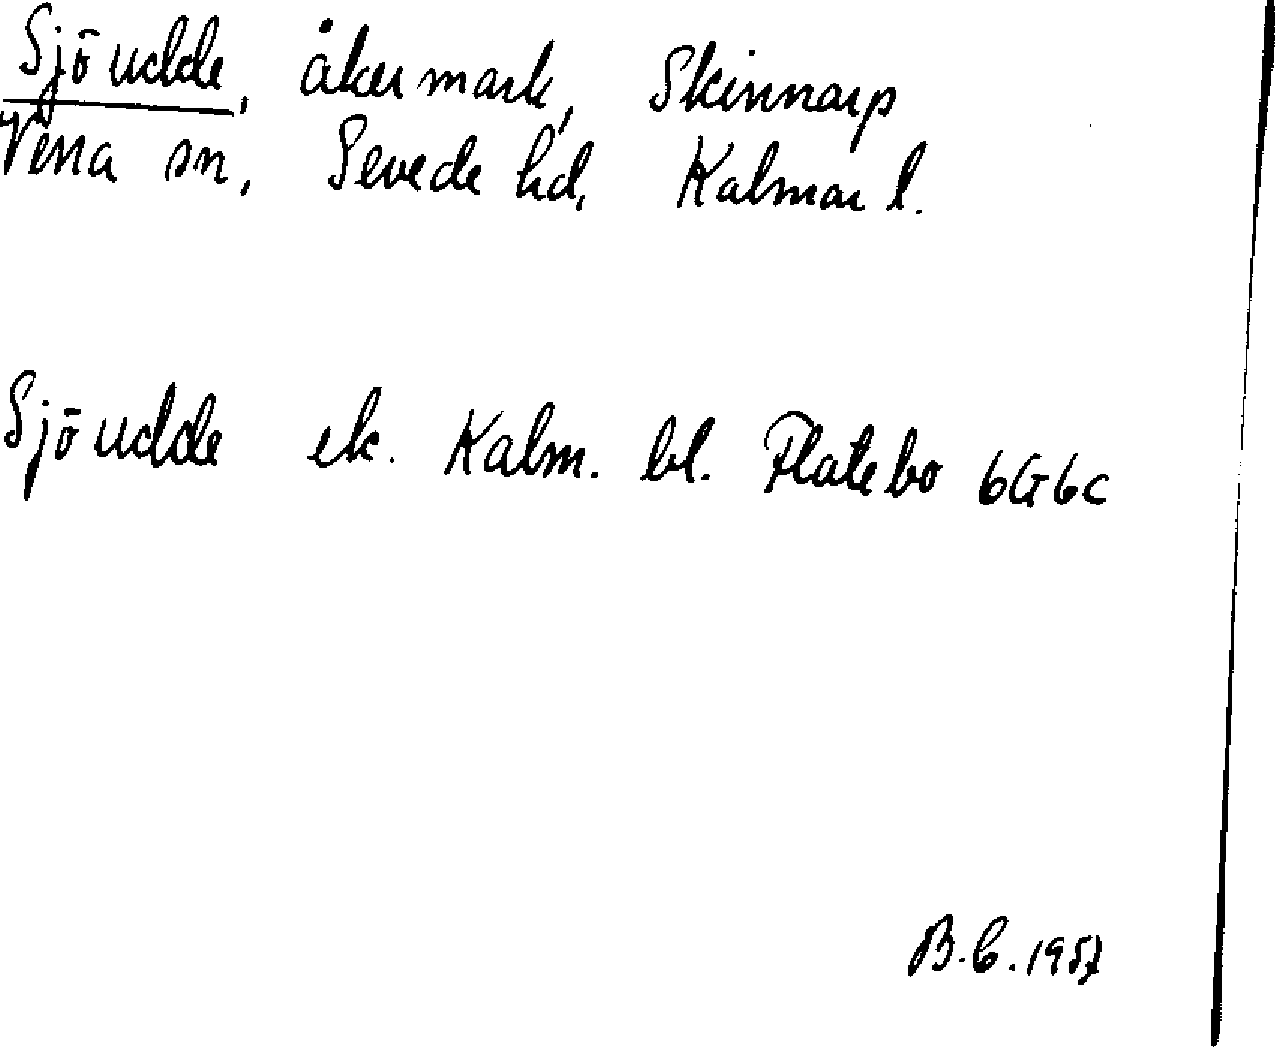 Sjöudde, åkermark, Skinnarp
Vena sn, Sevede hd, Kalmar l.
Sjöudde ek. Kalm. bl. Flatebo 6G6c
B.C. 1957